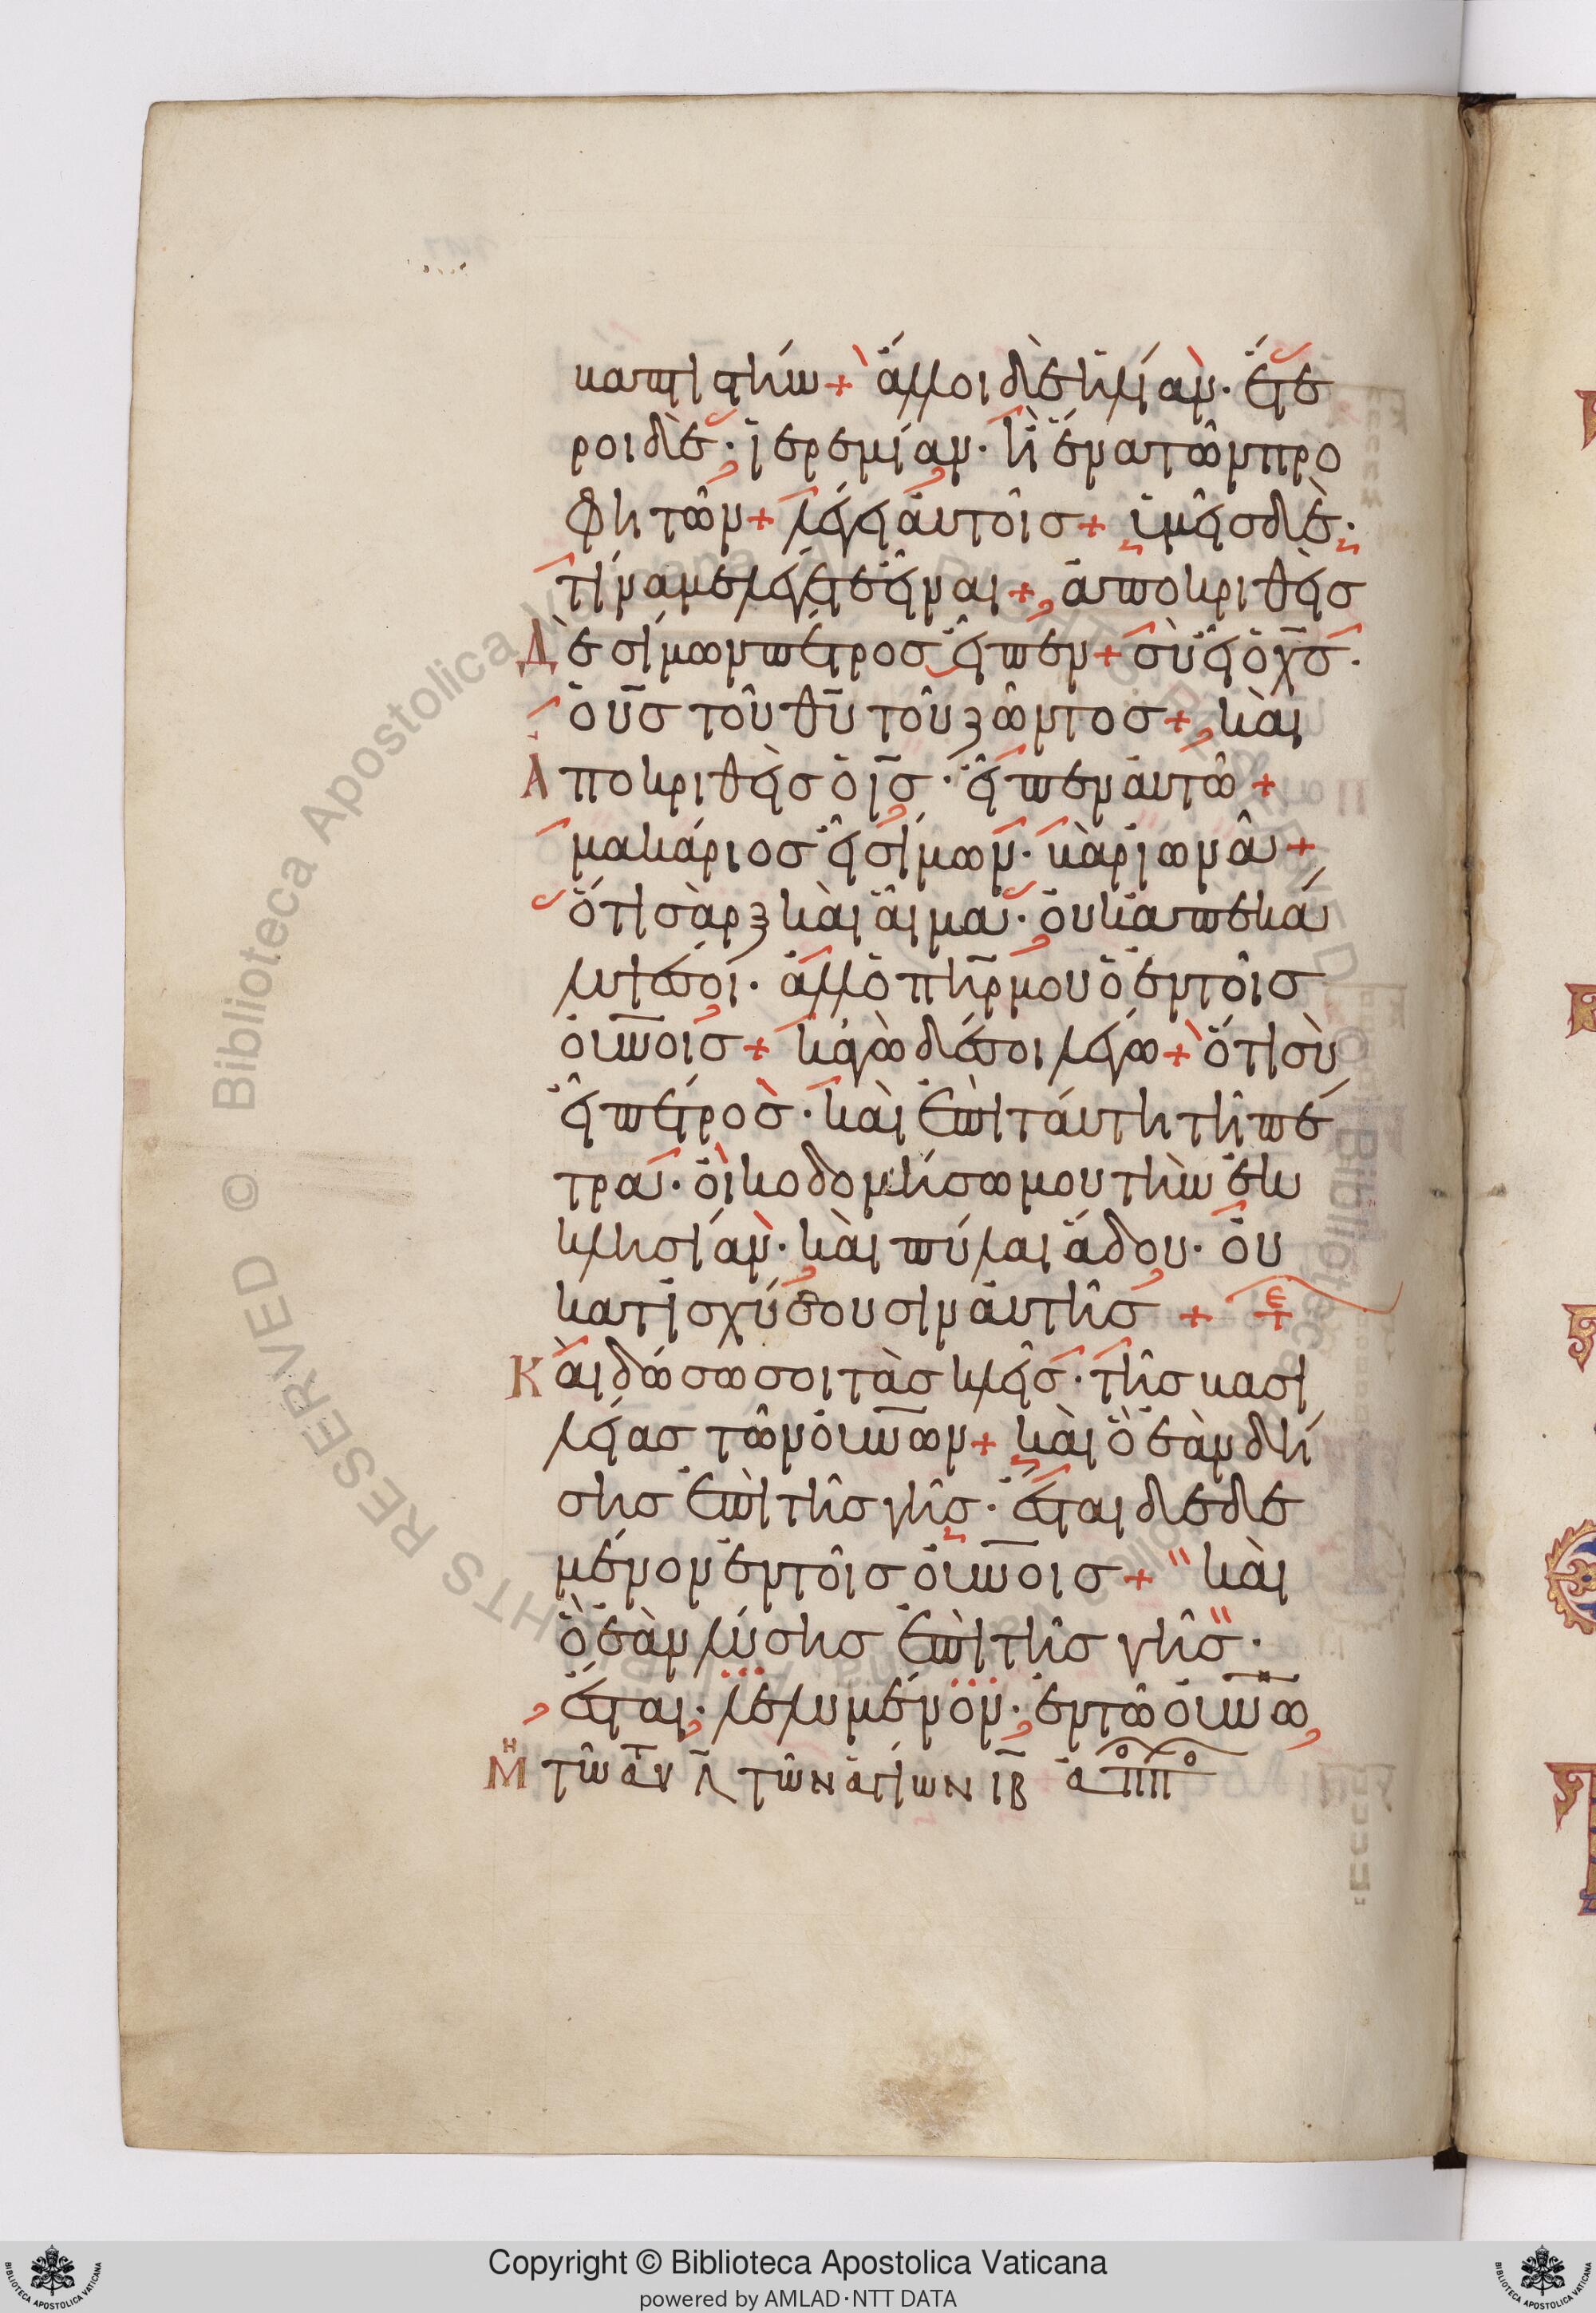 βαπτιστήν + ἄλλοι δὲ ἠλίαν· ἕτε
ροι δὲ· ἱερεμίαν· ἢ ἕνα τῶν προ
φητῶν + λέγει αὐτοῖσ + ὑμεῖσ δὲ·
τίνα με λέγετε εἶναι + ἀποκριθεὶσ
Δὲ σίμων πέτροσ εἶπεν + σὺ εἶ ὁ χ̅σ̅·
ὁ υ̅σ̅ τοῦ θ̅υ̅ τοῦ ζῶντοσ + καὶ
Ἀποκριθεὶσ ὁ ι̅σ̅· εἶπεν αὐτῶ +
μακάριοσ εἶ σίμων· βὰρ ἰωνᾶ +
ὅτι σὰρξ καὶ αἷμα· οὐκ ἀπεκά
λυψέ σοι· ἀλλ ὁ π̅η̅ρ̅ μου ὁ ἐν τοῖσ
οὐ̅ν̅οισ + κἀγὼ δέ σοι λέγω + ὅτι σὺ
εἶ πέτροσ· καὶ ἐπὶ ταύτη τῆ πέ
τρα· οἰκοδομήσω μου τὴν ἐκ
κλησίαν· καὶ πύλαι ἅδου· οὐ
κατισχύσουσιν αὐτῆσ + ε +
Καὶ δώσω σοι τὰσ κλεῖσ· τῆσ βασι
λείασ τῶν οὐ̅ν̅ων + καὶ ὃ ἐὰν δή
σησ ἐπὶ τῆσ γῆσ· ἔσται δεδε
μένον ἐν τοῖσ οὐ̅ν̅οισ + καὶ
ὃ ἐὰν λύσησ ἐπὶ τῆσ γῆσ·
ἔσται· λελυμένον· ἐν τῶ οὐ̅ν̅ω
Μη τῶ αυ Λ τῶν ἁγίων ιβ ἀππ
Copyright © Biblioteca Apostolica Vaticana
powered by AMLAD·NTT DATA